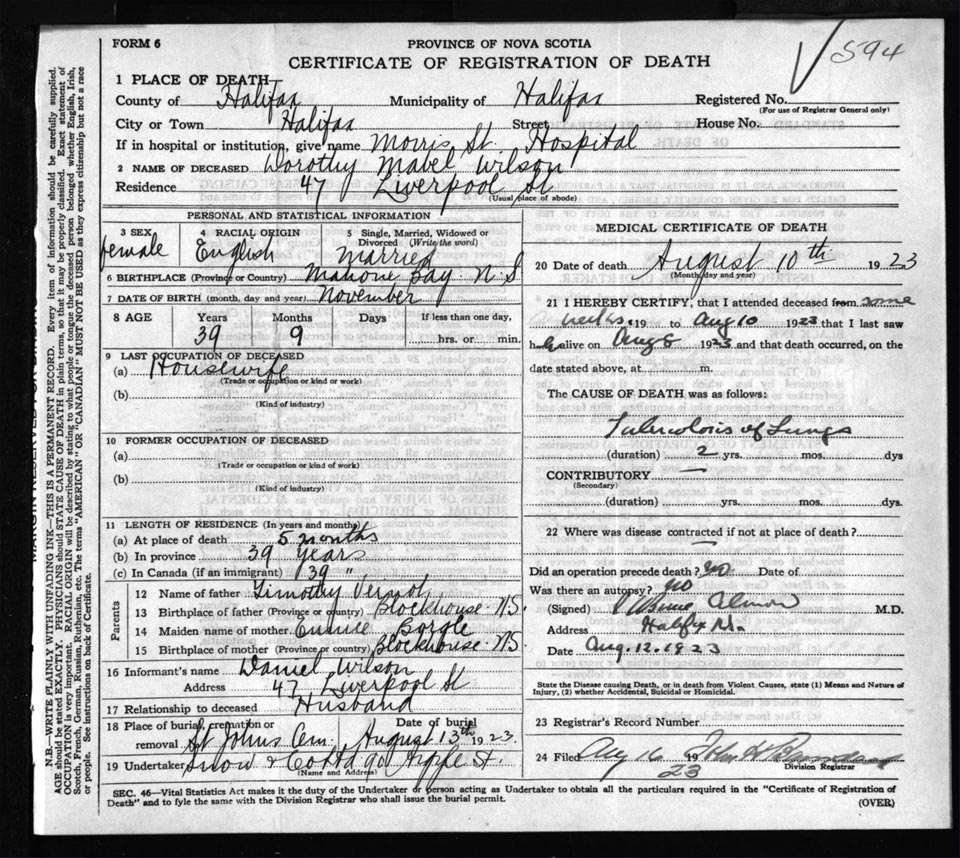 594
FORM 6
PROVINCE OF NOVA SCOTIA
CERTIFICATE OF REGISTRATION OF DEATH
1 PLACE OF DEATH
County of Halifax Municipality of Halifax Registered No.
(For use of Registrar General only)
City or Town Halifax Street House No.
If in hospital or institution, give name Morris St. Hospital
2 NAME OF DECEASED Dorothy Mabel Wilson
Residence 47 Liverpool St
(Usual place of abode)
PERSONAL AND STATISTICAL INFORMATION
3 SEX female
4 RACIAL ORIGIN English
5 Single, Married, Widowed or Divorced (Write the word) Married
6 BIRTHPLACE (Province or Country) Mahone Bay N.S
7 DATE OF BIRTH (month, day and year) November
8 AGE Years Months Days If less than one day,
39 9 hrs. or min.
9 LAST OCCUPATION OF DECEASED
(a) Housewife
(Trade or occupation or kind or work)
(b)
(Kind of industry)
10 FORMER OCCUPATION OF DECEASED
(a)
(Trade or occupation or kind of work)
(b)
(Kind of industry)
11 LENGTH OF RESIDENCE (In years and months)
(a) At place of death 5 months
(b) In province 39 years
(c) In Canada (if an immigrant) 39 "
Parents
12 Name of father Timothy
13 Birthplace of father (Province or country) Blockhouse N.S.
14 Maiden name of mother Eunice
15 Birthplace of mother (Province or country) Blockhouse N.S.
16 Informant's name Daniel Wilson
Address 47 Liverpool St
17 Relationship to deceased Husband
18 Place of burial, cremation or removal St Johns Cem. Date of burial August 13th 1923.
19 Undertaker Snow & Co Ltd 90 Argyle St.
(Name and Address)
MEDICAL CERTIFICATE OF DEATH
20 Date of death August 10th 1923
(Month, day and year)
21 I HEREBY CERTIFY, that I attended deceased from some
weeks, 19 to Aug 10 1923 that I last saw
her alive on Aug 8 1923 and that death occurred, on the
date stated above, at m.
The CAUSE OF DEATH was as follows:
Tuberculosis of Lungs
(duration) 2 yrs. mos. dys
CONTRIBUTORY —
(Secondary)
(duration) yrs. mos. dys.
22 Where was disease contracted if not at place of death?
—
Did an operation precede death? no Date of
Was there an autopsy? no
(Signed) Almon M.D.
Address Halifax N.S.
Date Aug. 12. 1923
State the Disease causing Death, or in death from Violent Causes, state (1) Means and Nature of Injury, (2) whether Accidental, Suicidal or Homicidal.
23 Registrar's Record Number
24 Filed Aug 16 1923 John H
Division Registrar
SEC. 46—Vital Statistics Act makes it the duty of the Undertaker or person acting as Undertaker to obtain all the particulars required in the "Certificate of Registration of
Death" and to fyle the same with the Division Registrar who shall issue the burial permit.
(OVER)
N.B.—WRITE PLAINLY WITH UNFADING INK—THIS IS A PERMANENT RECORD. Every item of information should be carefully supplied.
AGE should be stated EXACTLY. PHYSICIANS should STATE CAUSE OF DEATH in plain terms, so that it may be properly classified. Exact statement of
OCCUPATION is very important. RACIAL ORIGIN will be described by stating to what people or tongue the deceased person belonged whether English, Irish,
Scotch, French, German, Russian, Ruthenian, etc. The terms "AMERICAN" OR "CANADIAN" MUST NOT BE USED as they express citizenship but not a race
or people. See instructions on back of Certificate.